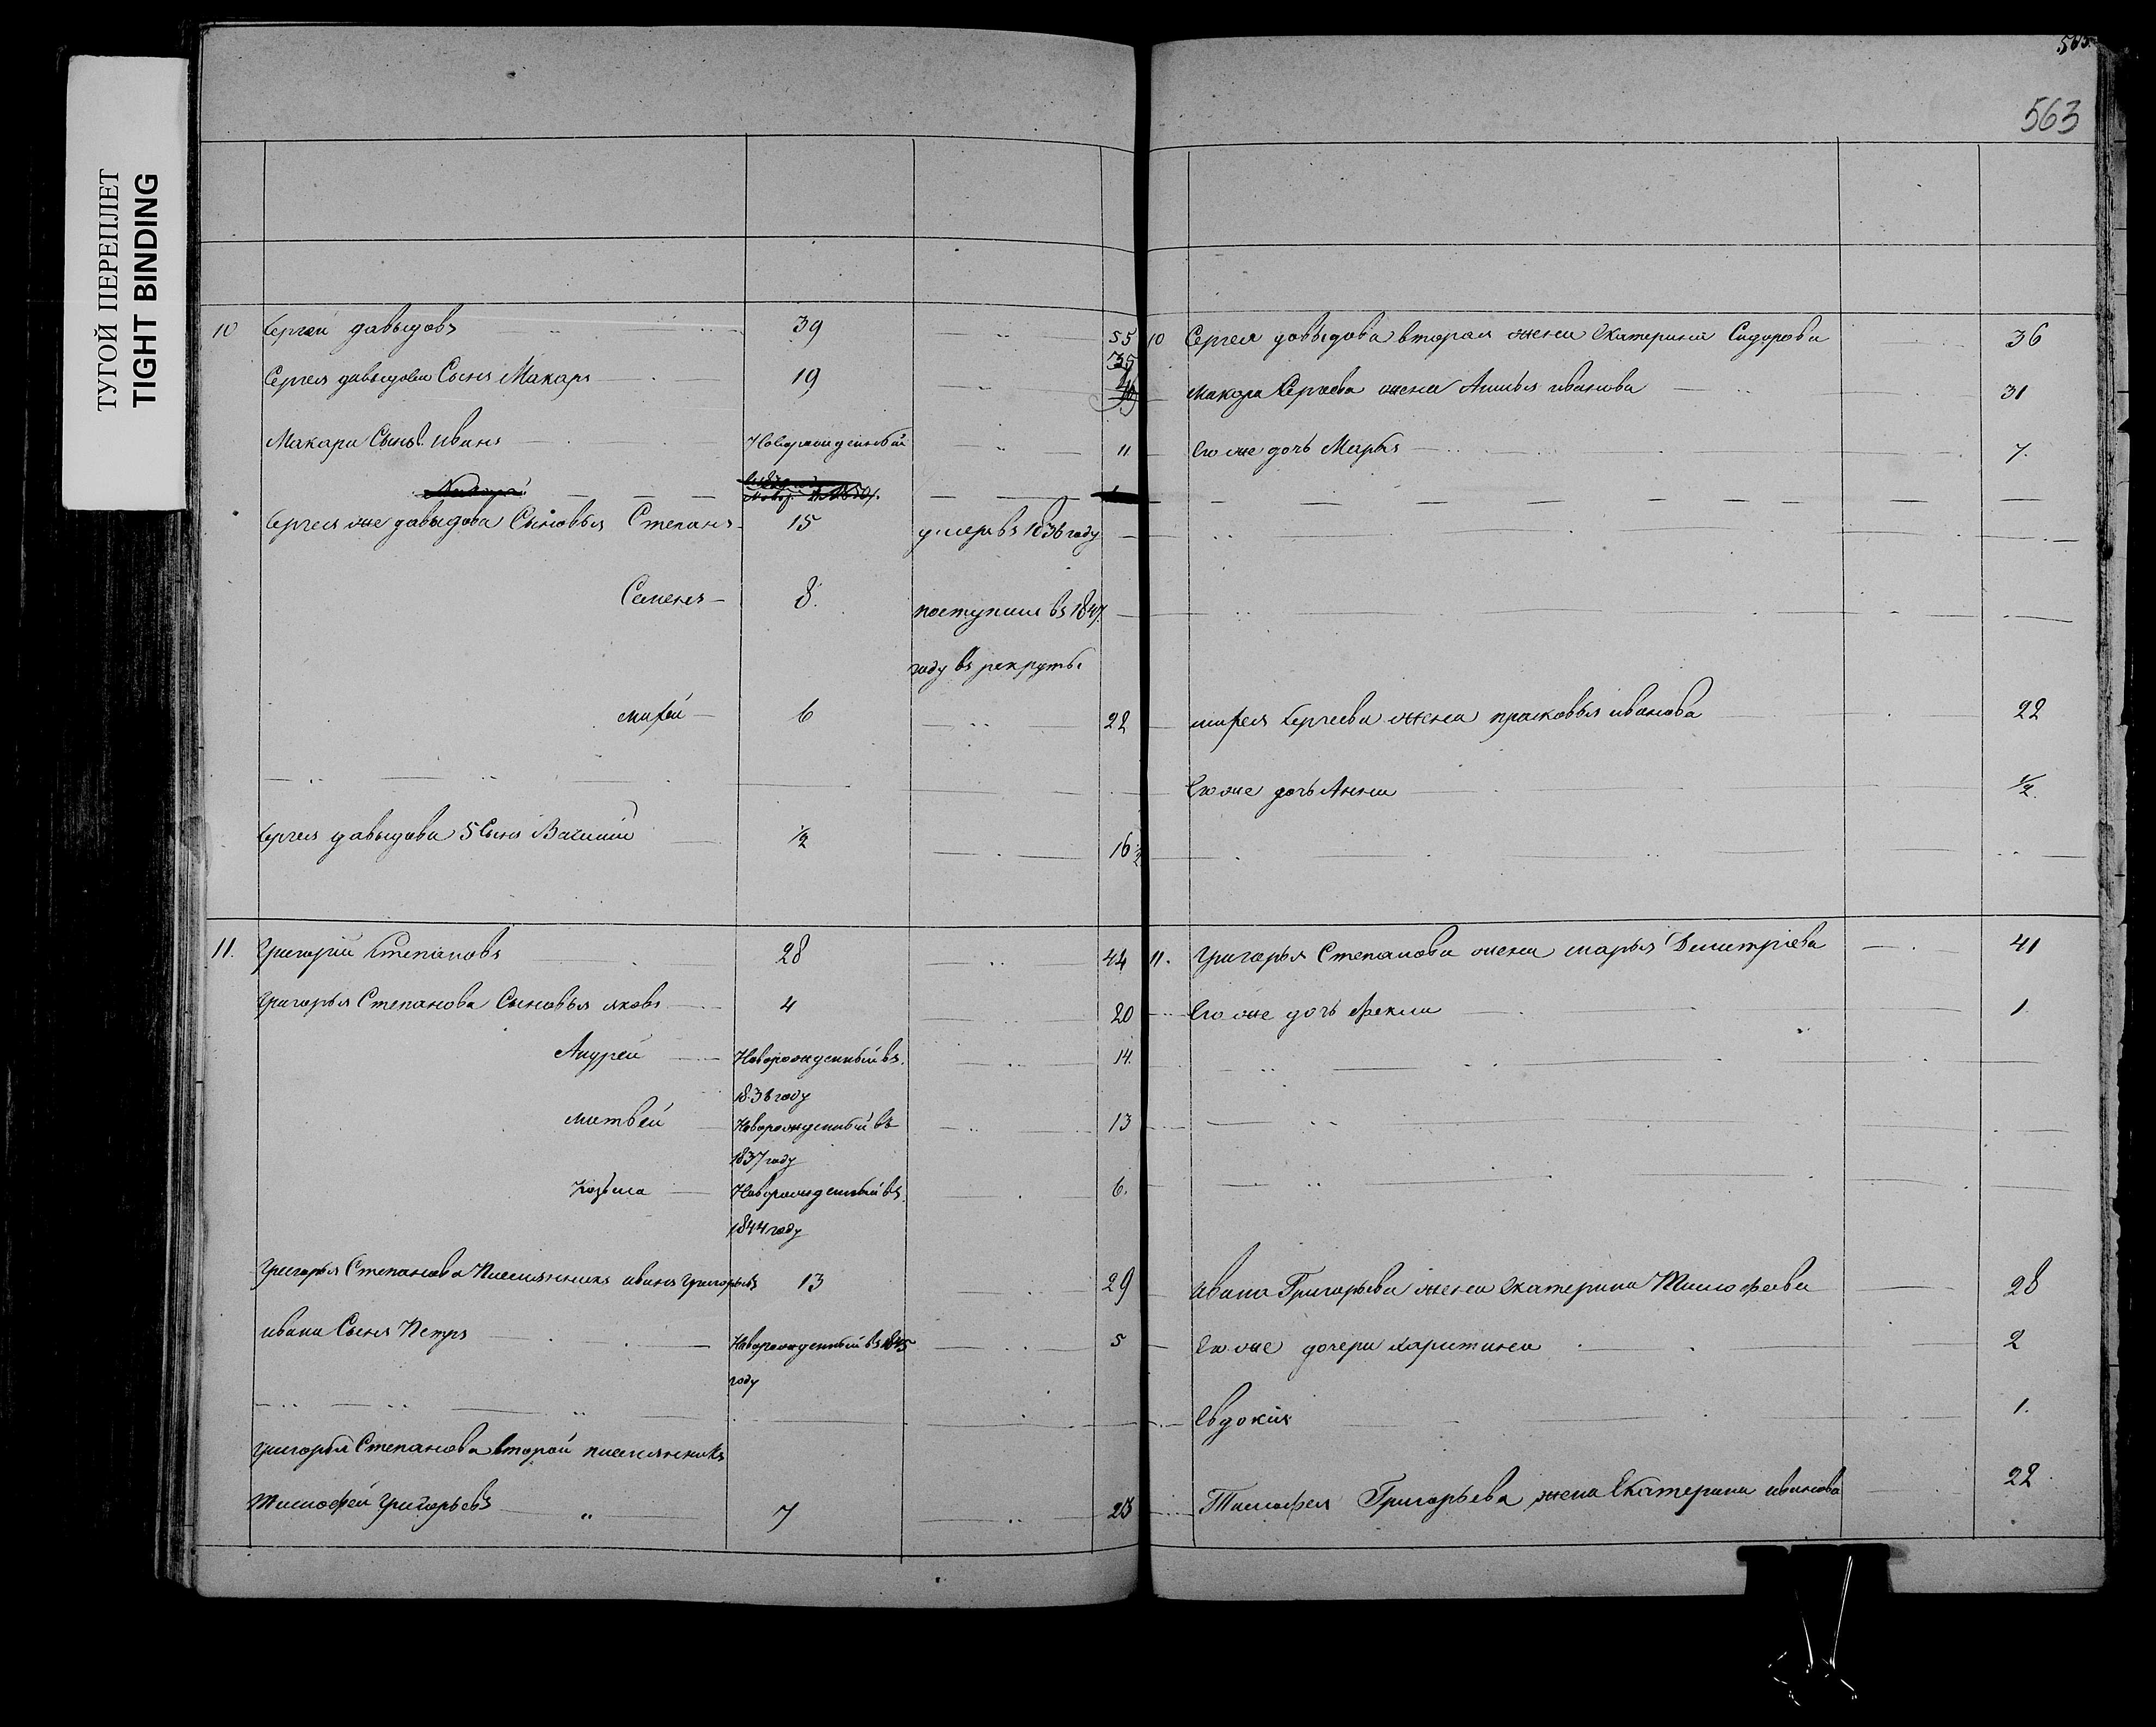 ТУГОЙ ПЕРЕПЛЕТ
TIGHT BINDING
10 Сергей давыдовъ 39 55
Сергея давыдова Сынъ Макаръ 19 35
Макара Сынъ иванъ Новорожденный 11
Сергея же давыдова Сыновья Степанъ 15 умеръ въ 1836 году
Семенъ 8. поступилъ въ 1847
году въ рекруты
миѳей 6 22
Сергея давыдова 5 Сынъ Василий 1/2 16 1/2
11. Григорий Степановъ 28 44
Григорья Степанова Сыновья яковъ 4 20
Андрей Новорожденный въ 14.
1836 году
матвей Новорожденный въ 13
1837 году
Козьма Новорожденный въ 6.
1844 году
Григорья Степанова Племянникъ иванъ григорьевъ 13 29
ивана Сынъ Петръ Новорожденный въ 1845 5
году
григорья Степанова второй племянникъ
Тимофей григорьевъ 7 23
563
10 Сергея давыдова вторая жена Екатерина Сидорова 36
макара Сергеева жена иванова 31
Его же дочь Марья 7.
миѳея Сергеева жена прасковья иванова 22
Его же дочь Анна 1/2
11. Григорья Степанова жена марья Дмитриева 41
Его же дочь Фекла 1
ивана Григорьева жена Екатерина Тимофеева 28
Его же дочери харитина 2
Евдокия 1.
Тимофея Григорьева жена Екатерина иванова 22